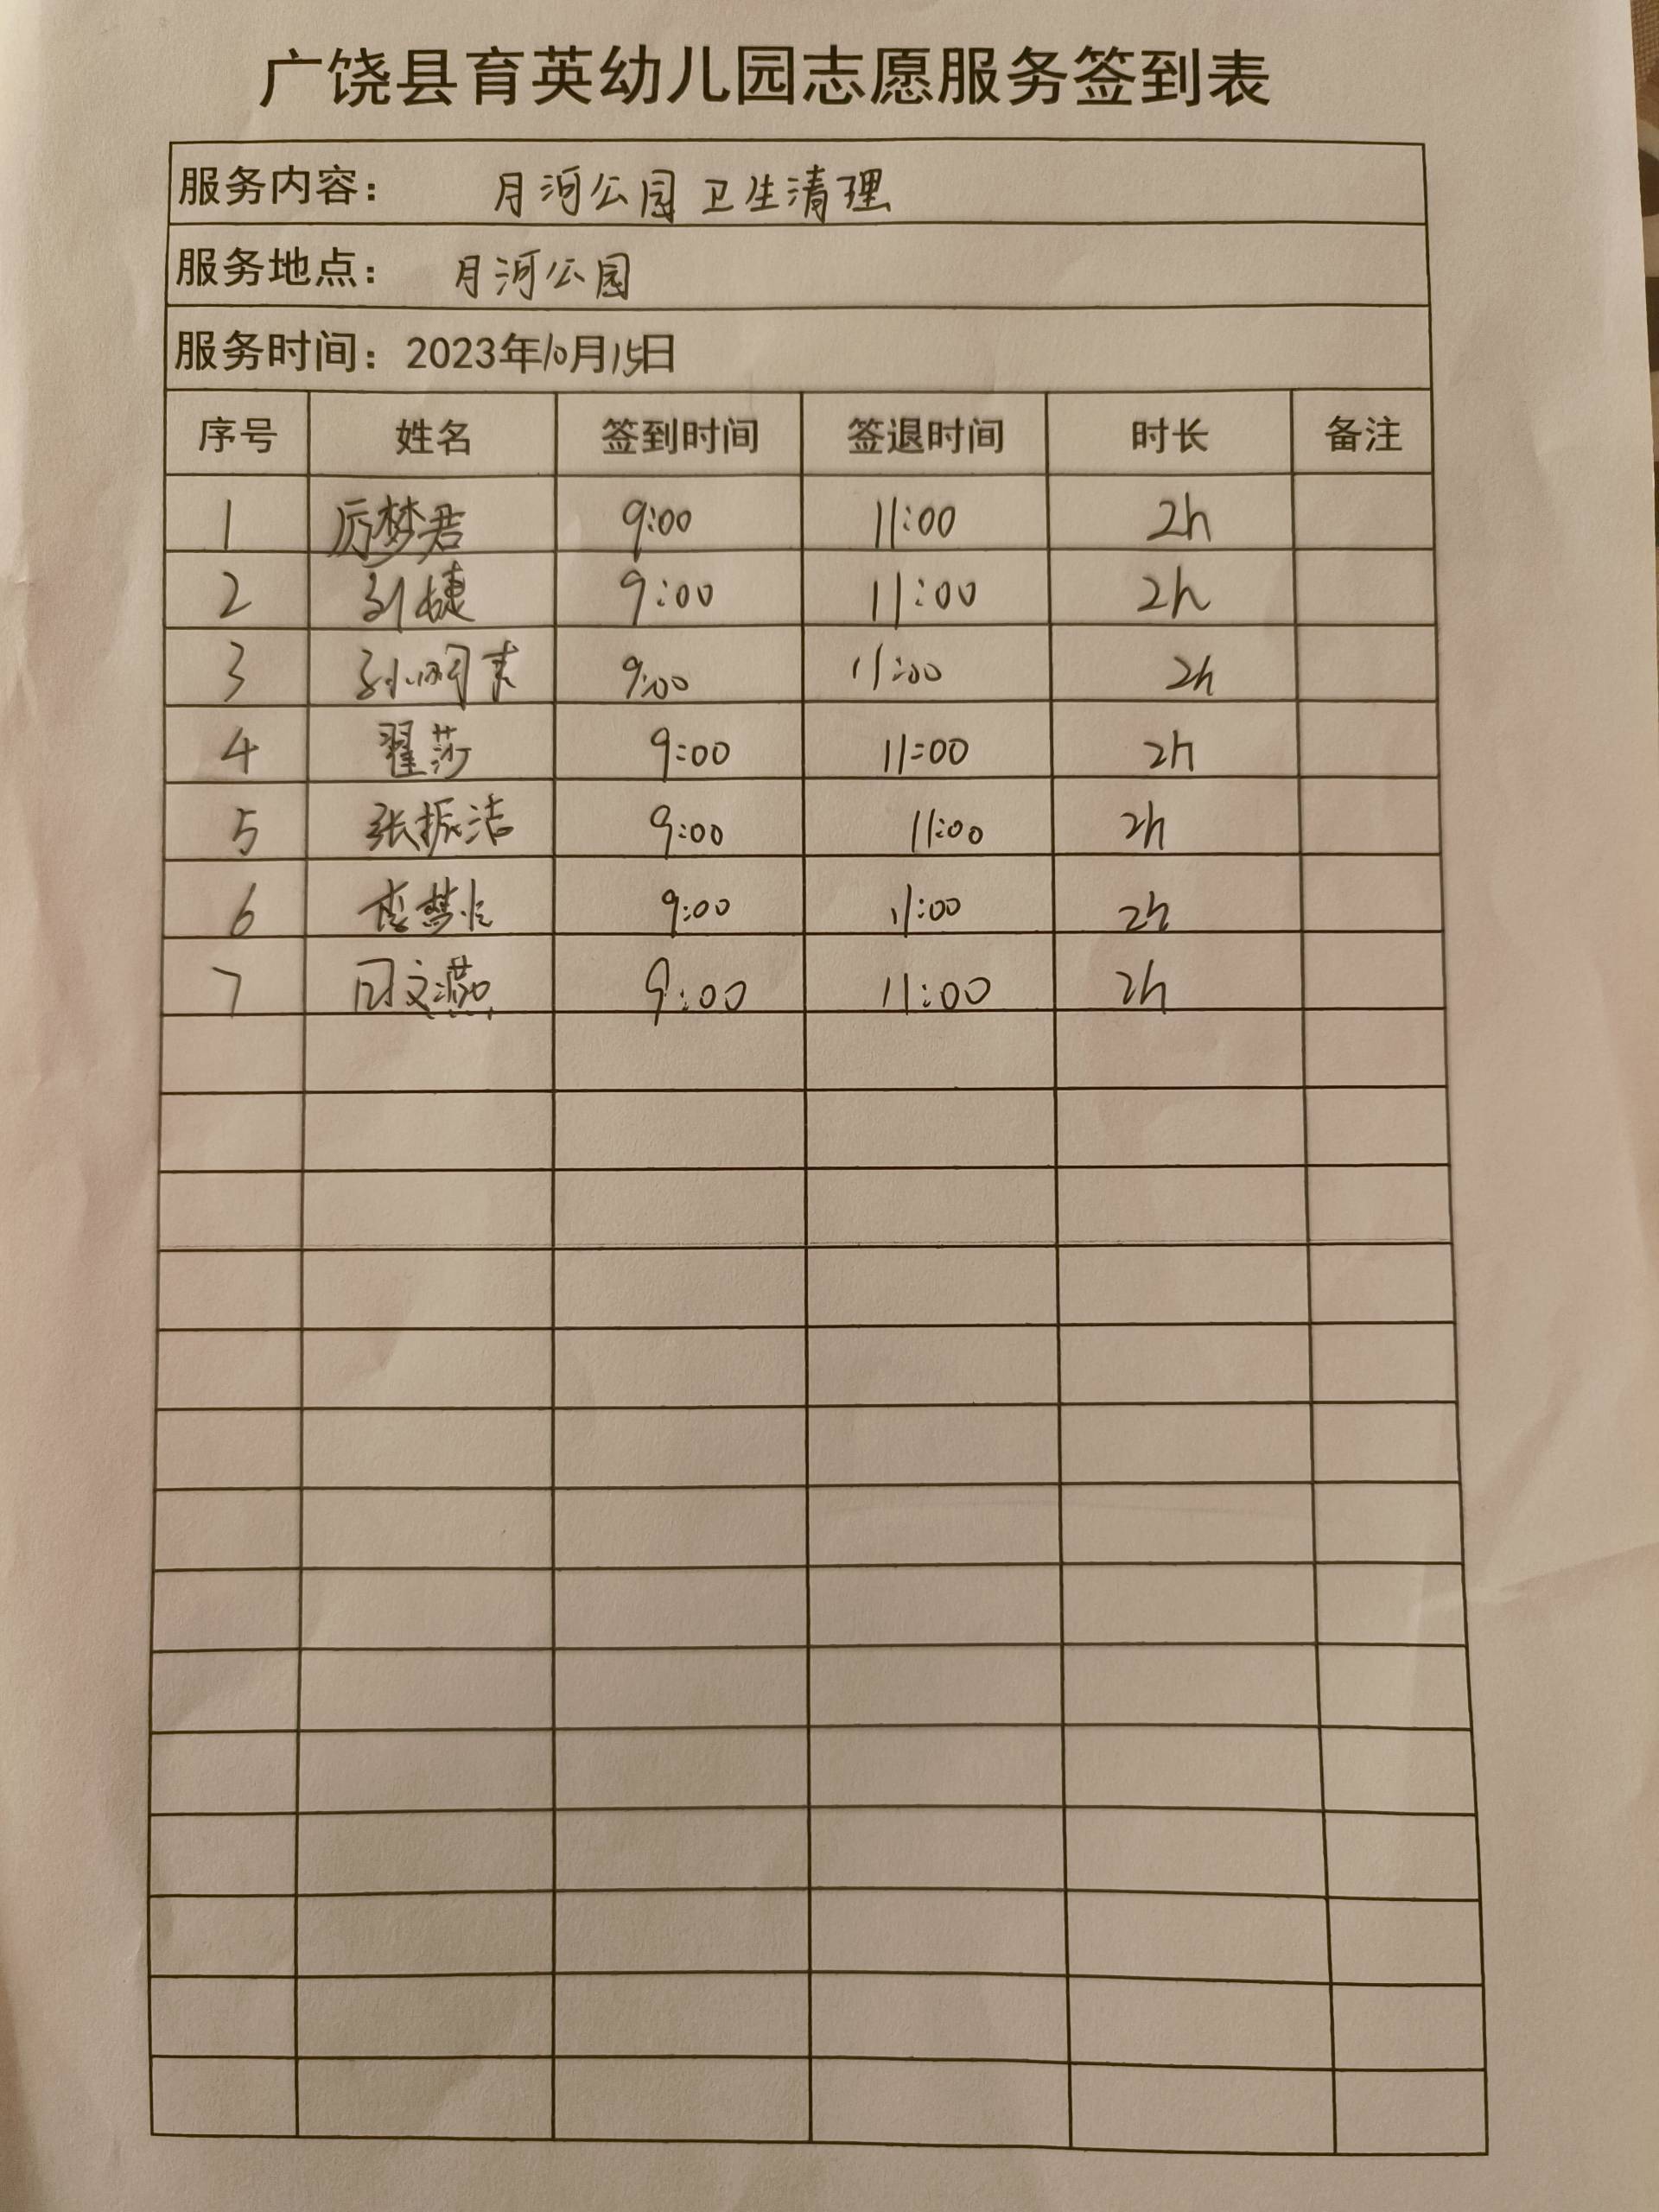 广饶县育英幼儿园志愿服务签到表
服务内容： 月河公园卫生清理
服务地点： 月河公园
服务时间：2023年10月15日
序号 姓名 签到时间 签退时间 时长 备注
1 厉梦君 9:00 11:00 2h
2 刘婕 9:00 11:00 2h
3 孙 9:00 11:00 2h
4 翟莎 9:00 11:00 2h
5 张振洁 9:00 11:00 2h
6 李梦 9:00 11:00 2h
7 文燕 9:00 11:00 2h